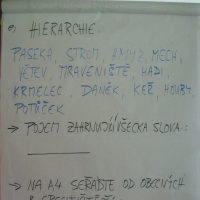 HIERARCHIE
PASEKA, STROM, HMYZ, MECH,
VĚTEV, MRAVENIŠTĚ, HADI,
KRMELEC, DANĚK, KEŘ, HOUBY,
POTŮČEK
→ POJEM ZAHRNUJÍCÍ VŠECKA SLOVA:
→ NA A4 SEŘAĎTE OD OBECNÝCH